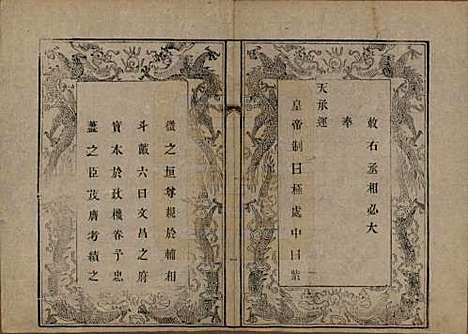 敕右丞相弘大
奉
天承運
皇帝制曰極處中曰紫
微之垣尊親於輔相
斗戴六曰文昌之府
寶本於政機眷予忠
藎之臣茂膺考績之